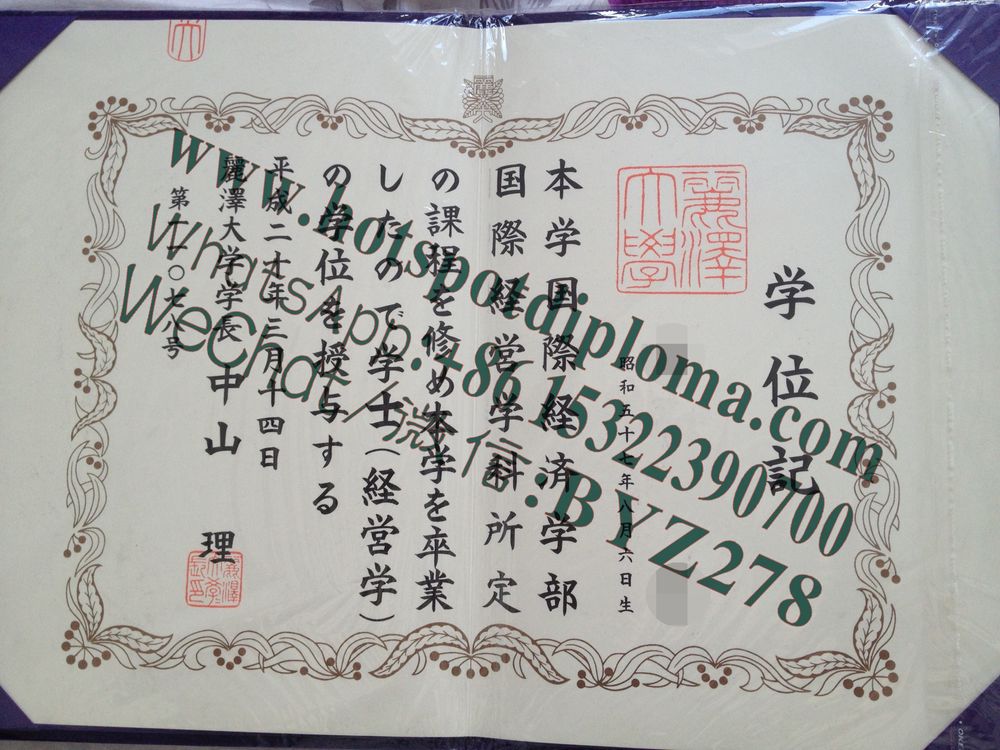 学位記
麗澤大學
昭和五十七年八月六日生
本学国際経済学部
国際経営学科所定
の課程を修め本学を卒業
したので学士(経営学)
の学位を授与する
平成二十年三月十四日
麗澤大学学長 中山 理
第一一〇七八号
www.hotspotdiploma.com
WhatsApp:+86 15322390700
Wechat/微信:BYZ278